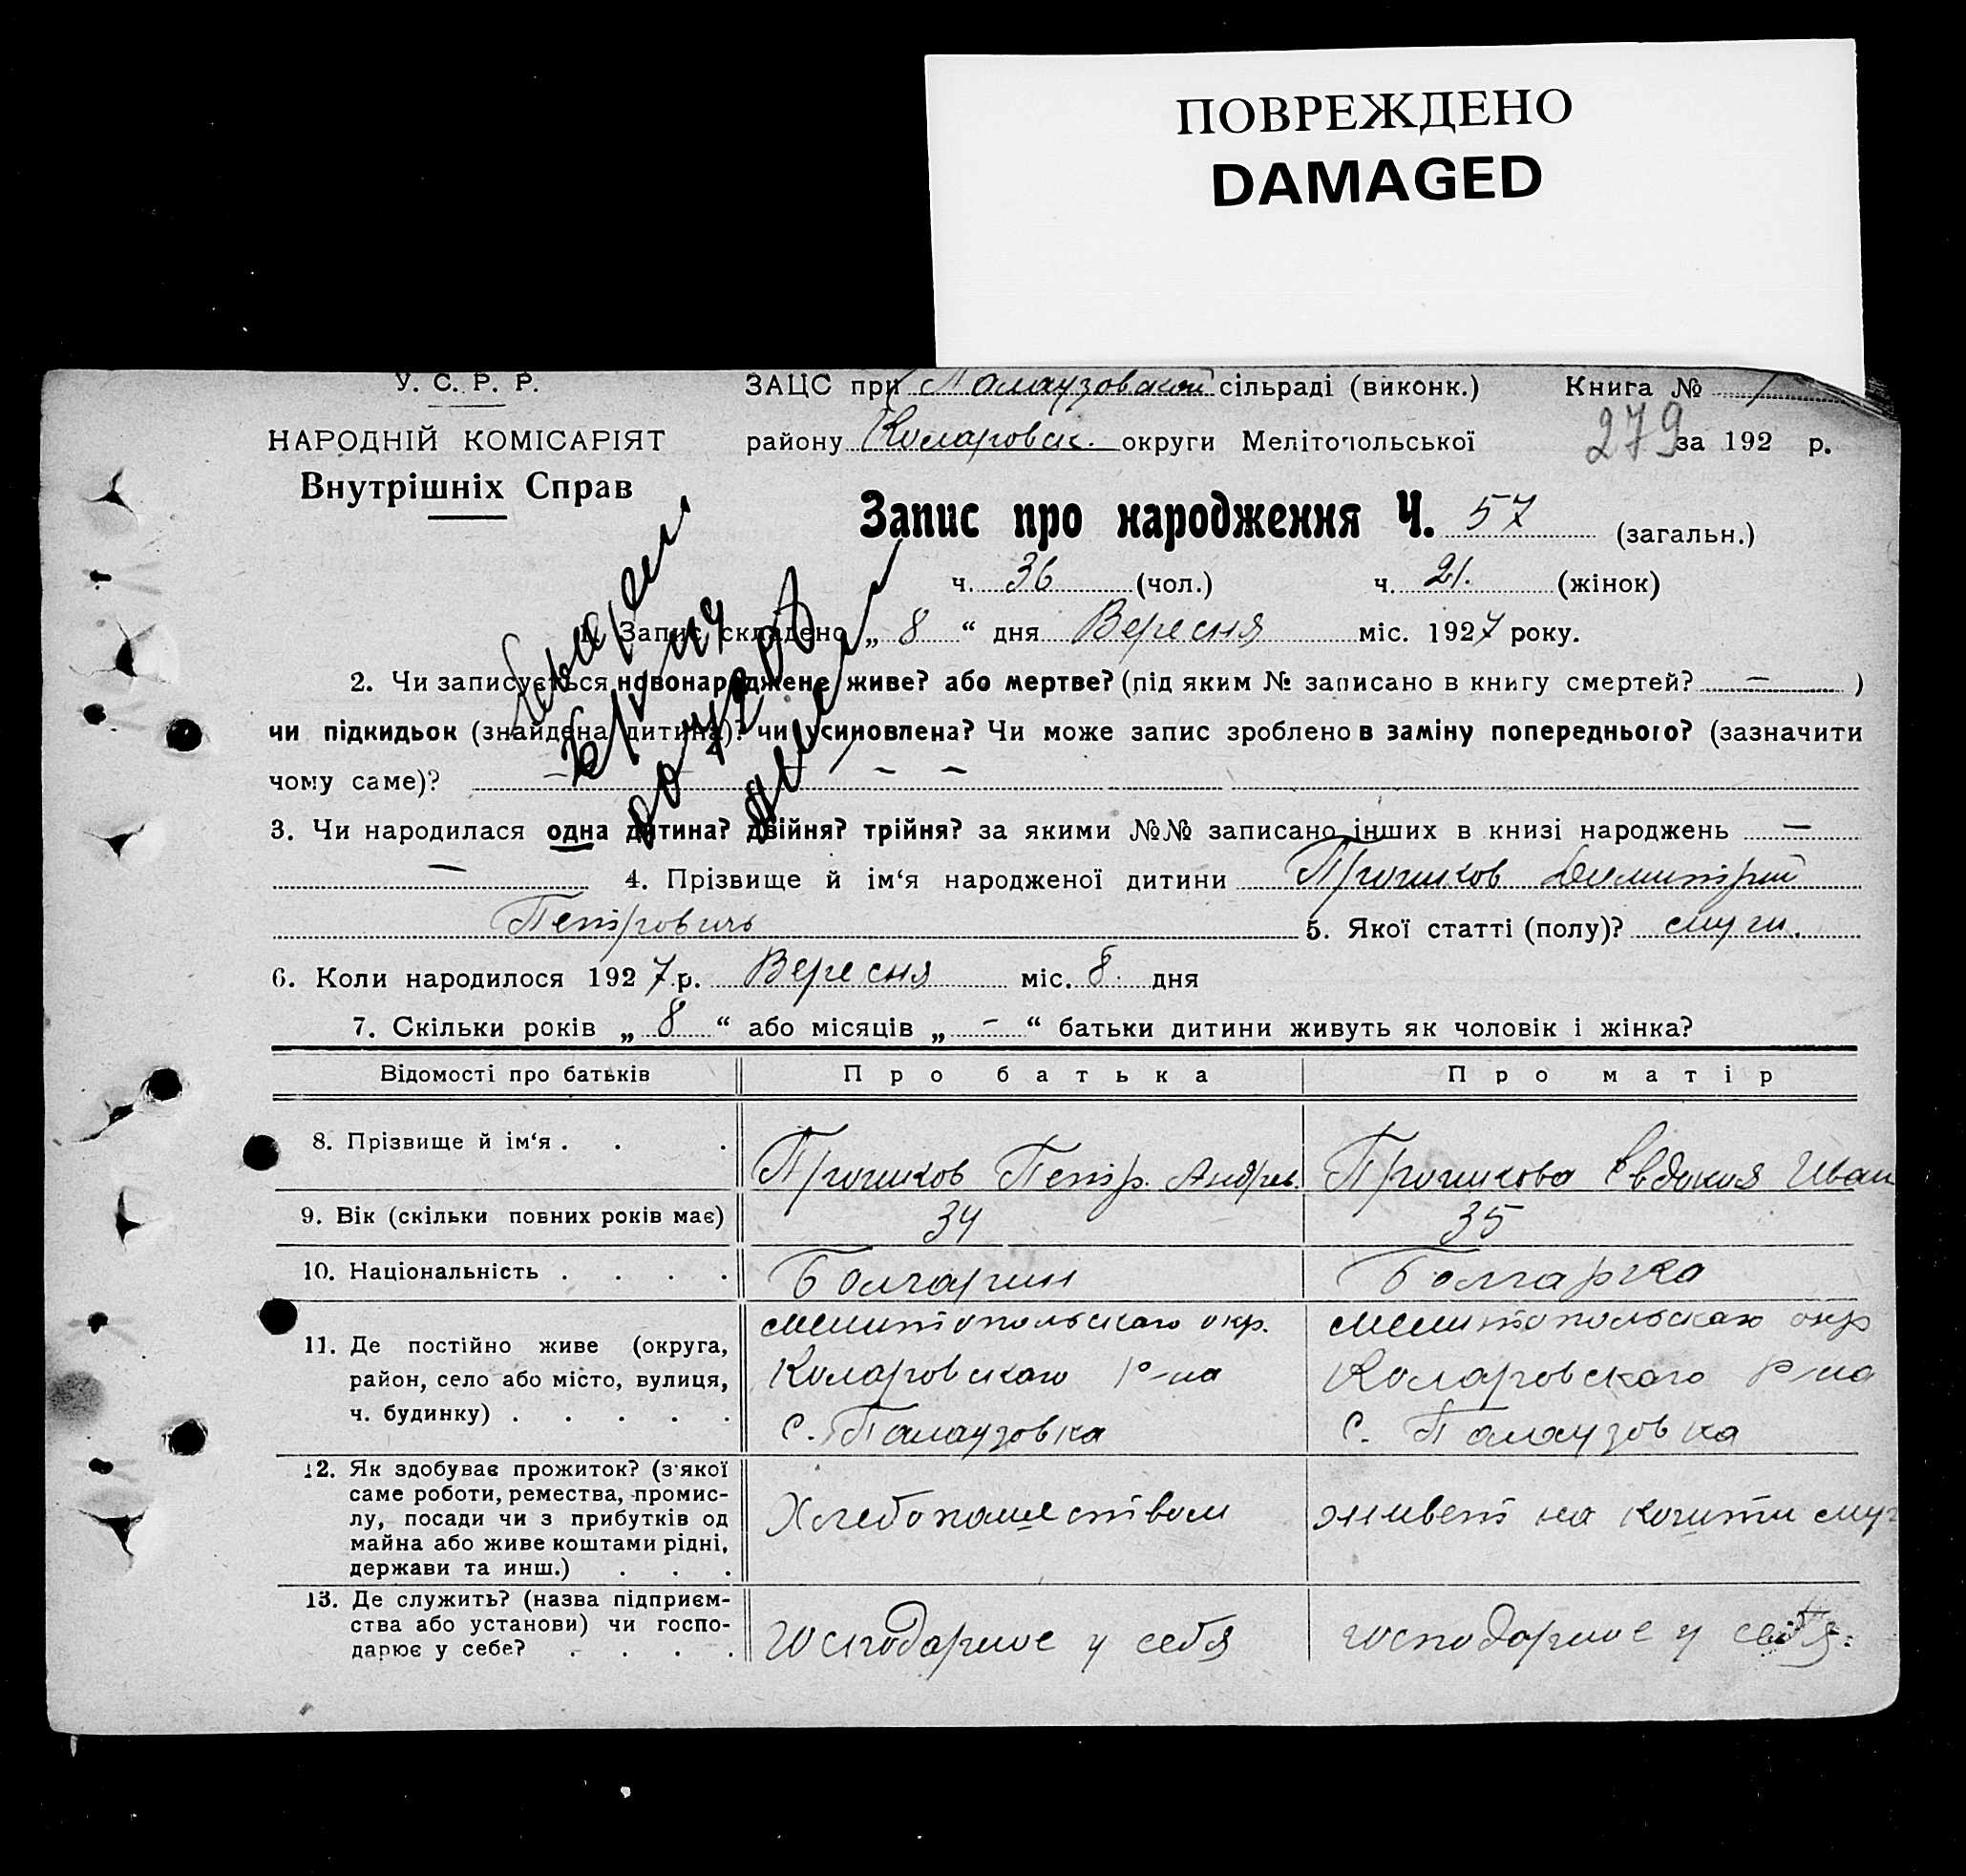 ПОВРЕЖДЕНО
DAMAGED
У. С. Р. Р.
ЗАЦС при Палаузовской сільраді (виконк.) Книга № 1
НАРОДНІЙ КОМІСАРІЯТ
району Коларовск. округи Мелітопольської 279 за 192 р.
Внутрішніх Справ
Запис про народження Ч. 57 (загальн.)
ч. 36 (чол.) ч. 21. (жінок)
1. Запис складено „ 8 “ дня Вересня міс. 1927 року.
2. Чи записується новонароджене живе? або мертве? (під яким № записано в книгу смертей? — )
чи підкидьок (знайдена дитина)? чи усиновлена? Чи може запис зроблено в заміну попереднього? (зазначити
чому саме)? — — —
3. Чи народилася одна дитина? двійня? трійня? за якими №№ записано інших в книзі народжень —
— 4. Прізвище й ім‘я народженої дитини Димитрий
Петровичь 5. Якої статті (полу)? муги.
6. Коли народилося 1927 р. Вересня міс. 8. дня
7. Скільки років „ 8 “ або місяців „ - “ батьки дитини живуть як чоловік і жінка?
Відомості про батьків Про батька Про матір
8. Прізвище й ім‘я . . . Петр. Андрев. Евдокия Иван
9. Вік (скільки повних років має) 34 35
10. Національність . . . . Болгарин Болгарка
11. Де постійно живе (округа, район, село або місто, вулиця, ч. будинку) . . . . .
Мелитопольскаго окр.
Коларовскаго р-на
с. Палаузовка
Мелитопольскаго окр
Коларовскаго р-на
с. Палаузовка
12. Як здобуває прожиток? (з'якої
саме роботи, ремества, промис-
лу, посади чи з прибутків од
майна або живе коштами рідні,
держави та инш.) . . .
Хлебопашеством
живет на кошти муг
13. Де служить? (назва підприєм-
ства або установи) чи госпо-
дарює у себе? . . . .
господарює у себя
господарює у себя.